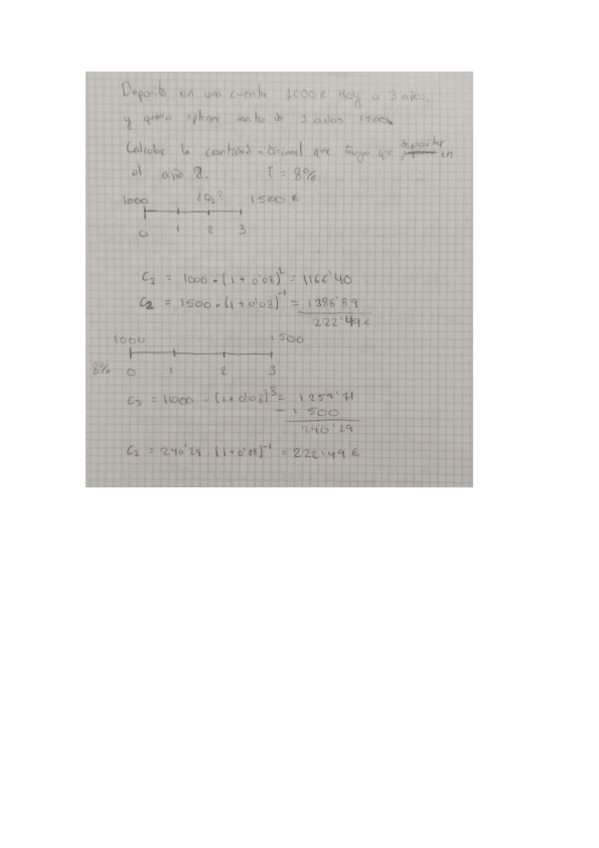 Deposito en una cuenta 1000€ Hoy a 3 años.
y quiero obtener dentro de 3 años 1500€
Calcular la cantidad adicional que tengo q= depositar en
el año 2. i = 8%
1000 ¿C2? 1500 €
0 1 2 3
C2 = 1000 · (1+0'08)^2 = 1166'40
C2 = 1500 · (1+0'08)^-1 = 1388'89
222'49€
1000 1500
8% 0 1 2 3
C3 = 1000 · (1+0'08)^3 = 1259'71
- 1500
240'29
C2 = 240'29 · (1+0'08)^-1 = 222'49 €